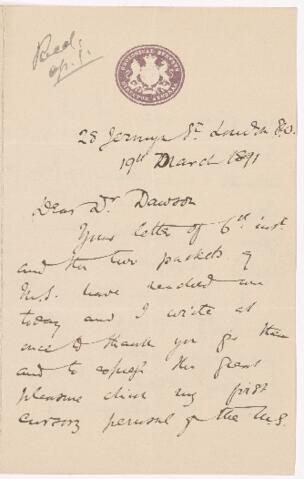 Recd.
28 Jermyn St London SW.
19th March 1891
Dear Dr Dawson
Your letter of 6th inst
and the two packets of
M.S. have reached me
today and I write at
once to thank you for them
and to express the great
pleasure my first
cursory perusal of the M.S.